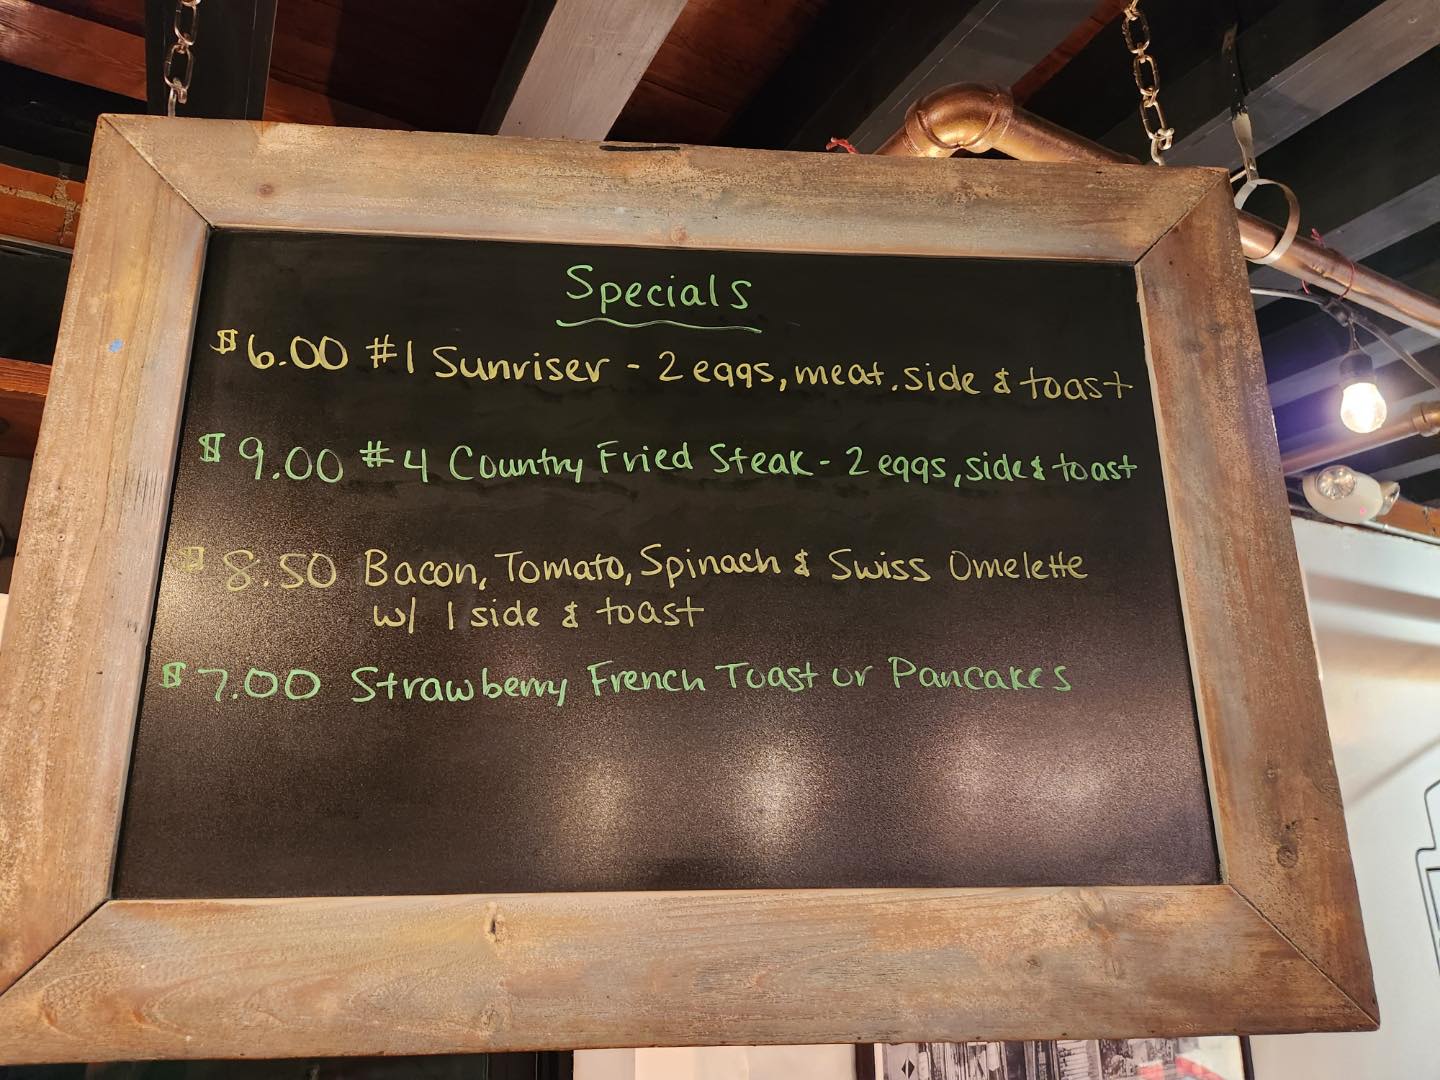 Specials
$6.00 #1 Sunriser - 2 eggs, meat, side & toast
$9.00 #4 Country Fried Steak - 2 eggs, side & toast
$8.50 Bacon, Tomato, Spinach & Swiss Omelette
w/ 1 side & toast
$7.00 Strawberry French Toast or Pancakes